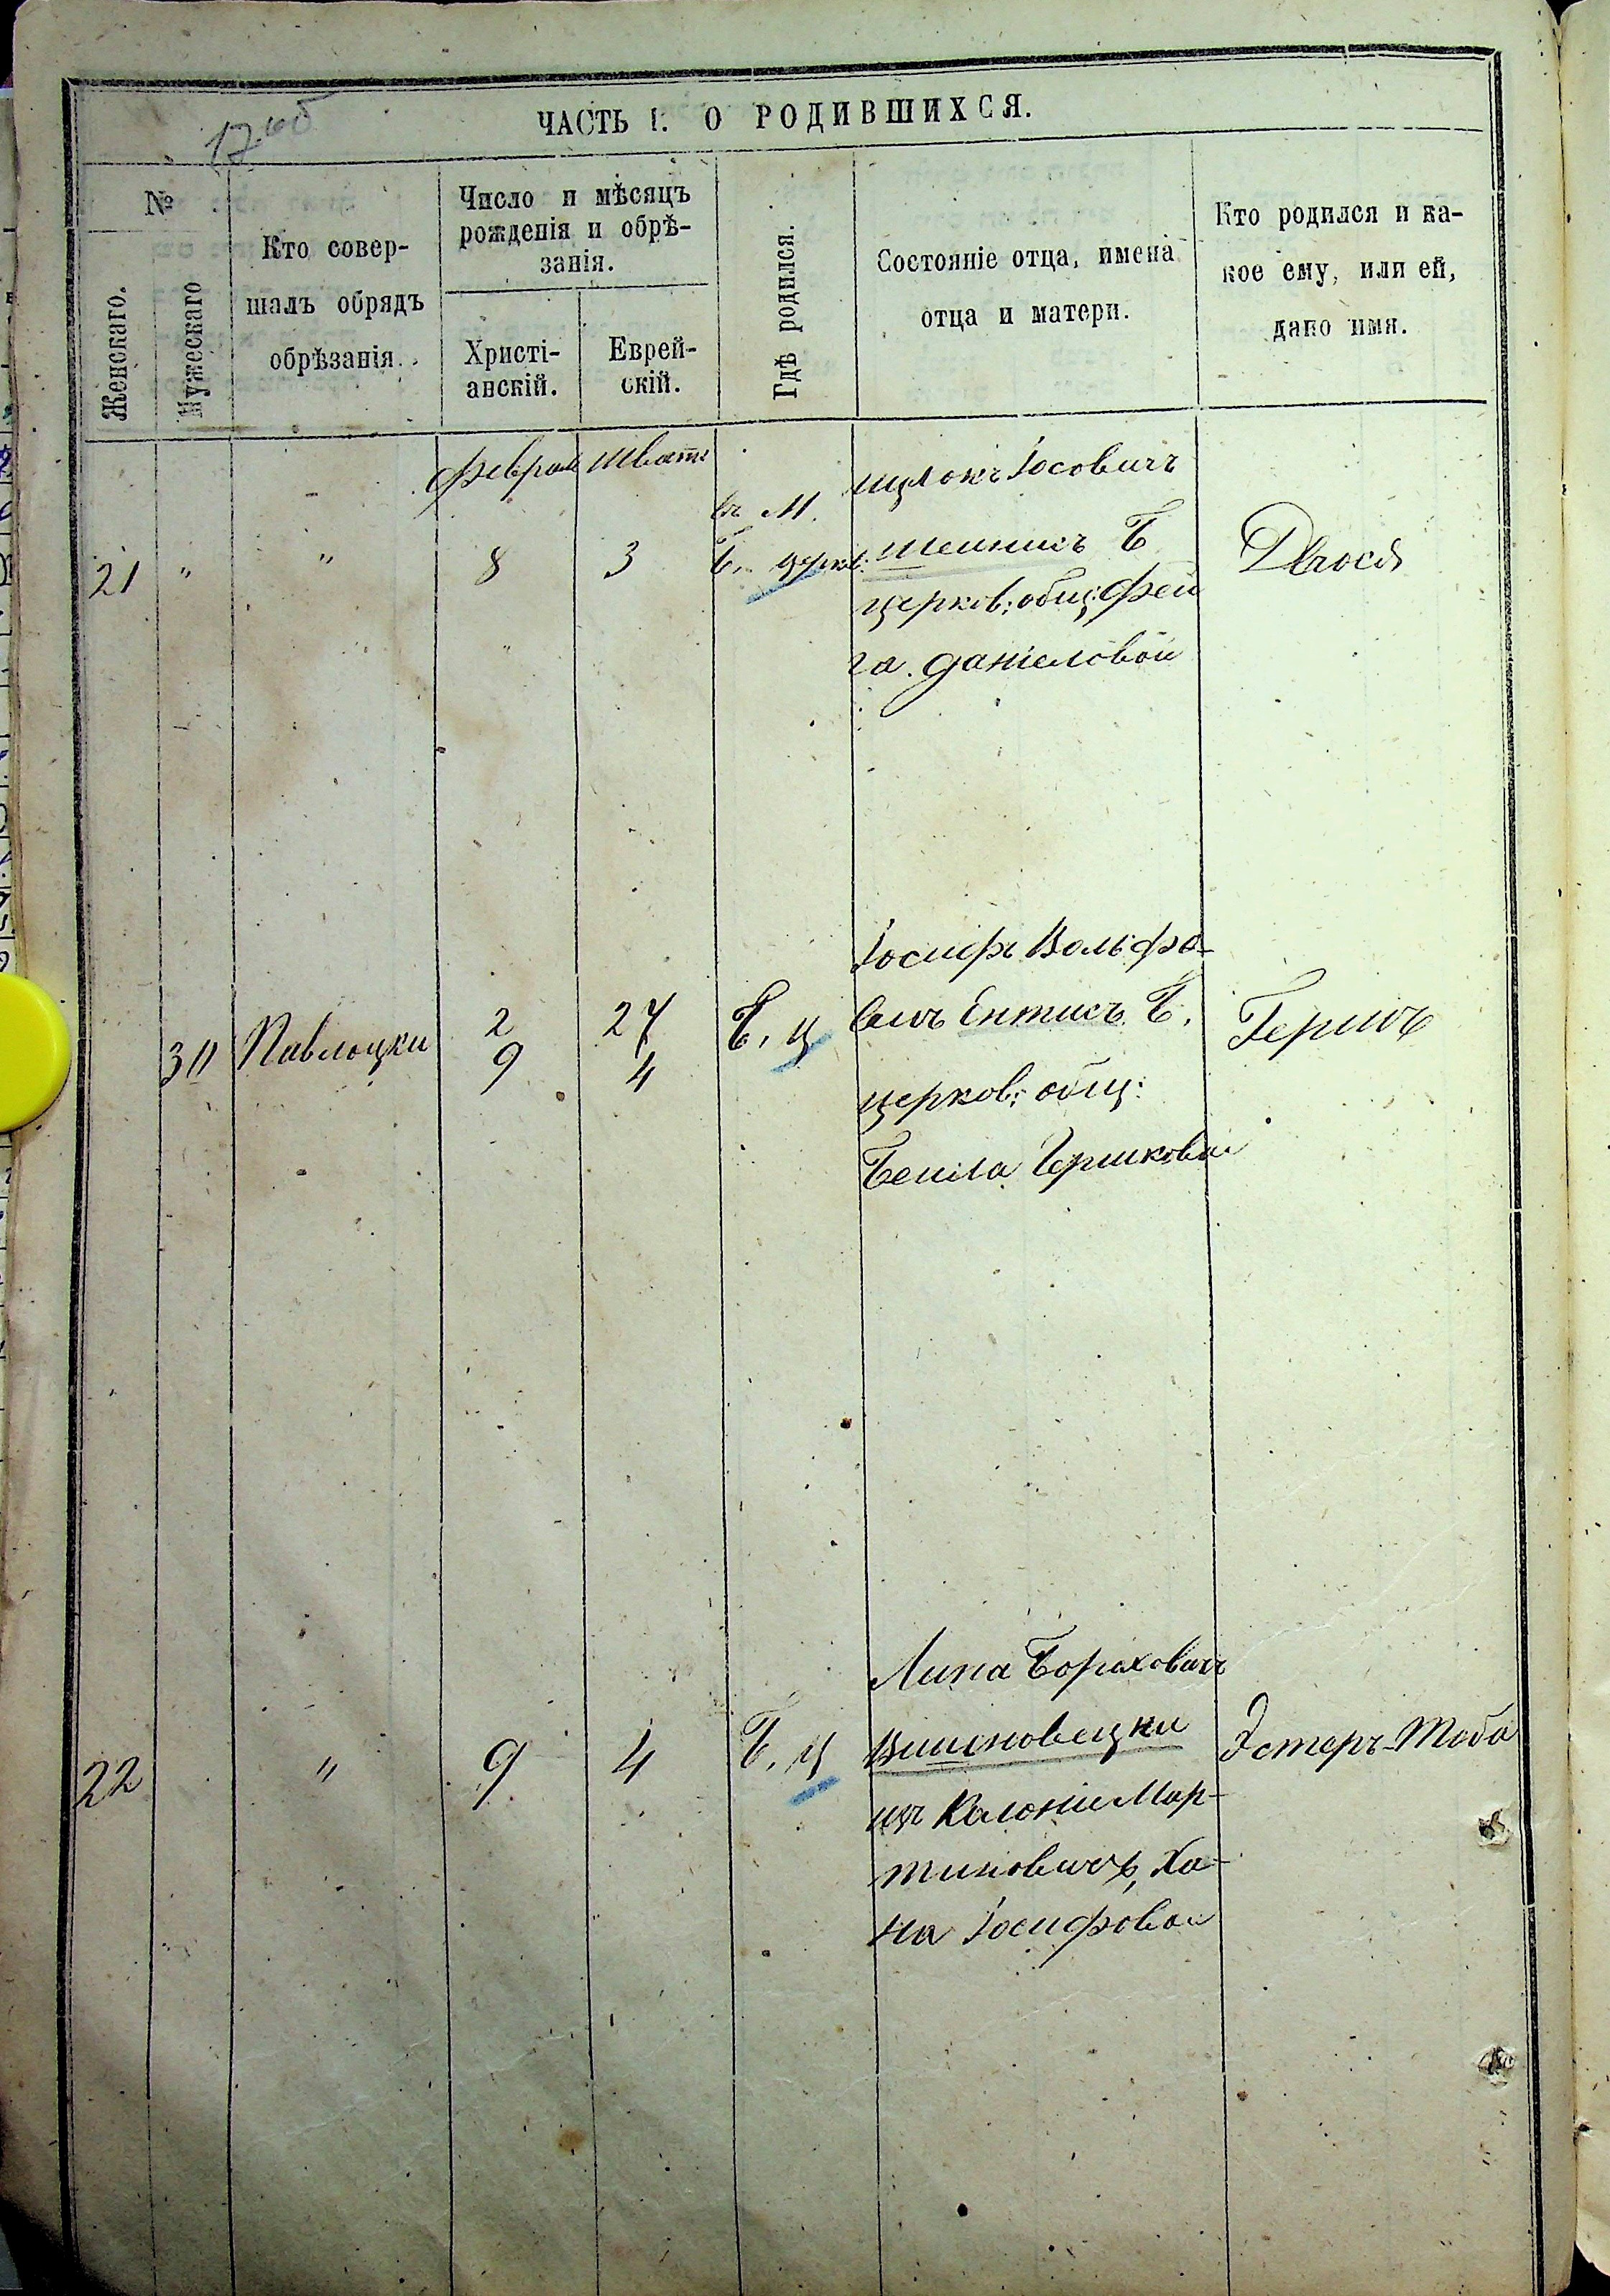 17 об
ЧАСТЬ I. О РОДИВШИХСЯ.
№
Женскаго.
Мужескаго
Кто совер-
шалъ обрядъ
обрѣзанія.
Число и мѣсяцъ
рожденія и обрѣ-
занія.
Христі-
анскій.
Еврей-
скій.
Гдѣ родился.
Состояніе отца, имена
отца и матери.
Кто родился и ка-
кое ему, или ей,
дано имя.
февраля шватъ
21 " " 8 3
въ М.
Б. церкв:
Іосовичъ
Б
церков: общ: Фей
га Даніеловой
Двося
30 Павлоцки
2 27
9 4
Б. Ц
Іосифъ Вольфо-
вичъ Ентисъ Б.
церков: общ:
Бейла Гершковой
Гершъ
22 " 9 4 Б. Ц
Липа Бораховичъ
Вишновецки
изъ Колоніи Мар-
тиновичъ, Ха-
на Іосифовой
Эстеръ-Тоба